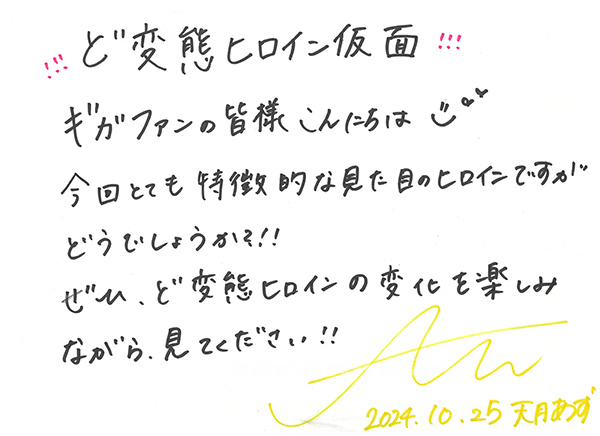 !!! ど変態ヒロイン仮面 !!!
ギガファンの皆様こんにちは
今回とても特徴的な見た目のヒロインですが
どうでしょうか?!!
ぜひ、ど変態ヒロインの変化を楽しみ
ながら、見てください!!
2024.10.25 天月あず